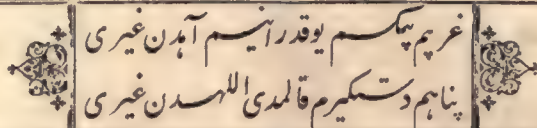 غریبم بیکسم یوقدر انیسم آهدن غیری
پناهم دستکیرم قالمدی اللهدن غیری